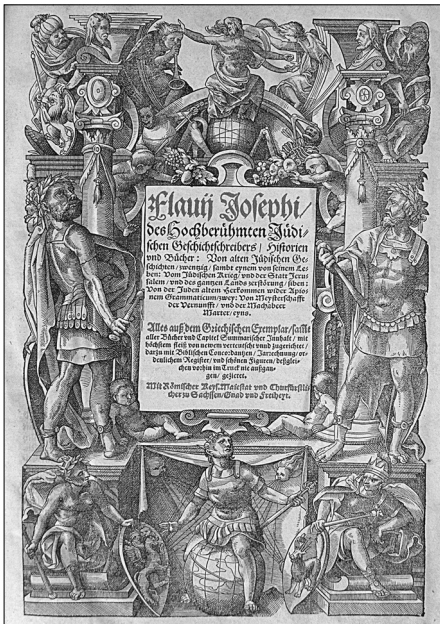 Flauij Josephi/
des Hochberühmten Jüdi-
schen Geschichtschreibers/ Historien
und Bücher: Von alten Jüdischen Ge-
schichten/zwentzig/ sambt eynem von seinem Le-
ben: Vom Jüdischen Krieg/ vnd der Statt Jeru-
salem/ vnd des gantzen Lands zerstörung/ siben:
Von der Juden altem Herkommen wider Apio-
nem Grammaticum/zwey: Von Meysterschafft
der Vernunfft/ vnd der Machabeer
Marter/ eyns.
Alles auß dem Griechischen Exemplar/ sampt
aller Bücher vnd Capitel Summarischer Innhalt/ mit
höchstem fleiß von newem verteutscht vnd zugerichtet/
darzu mit Biblischen Concordantzen/ Jarrechnung/ or-
denlichem Register/ vnd schönen Figuren/ deßglei-
chen vorhin im Truck nie außgan-
gen/ gezieret.
Mit Römischer Keys. Maiestat vnd Churfürstli-
cher zu Sachssen/ Gnad vnd Freiheyt.